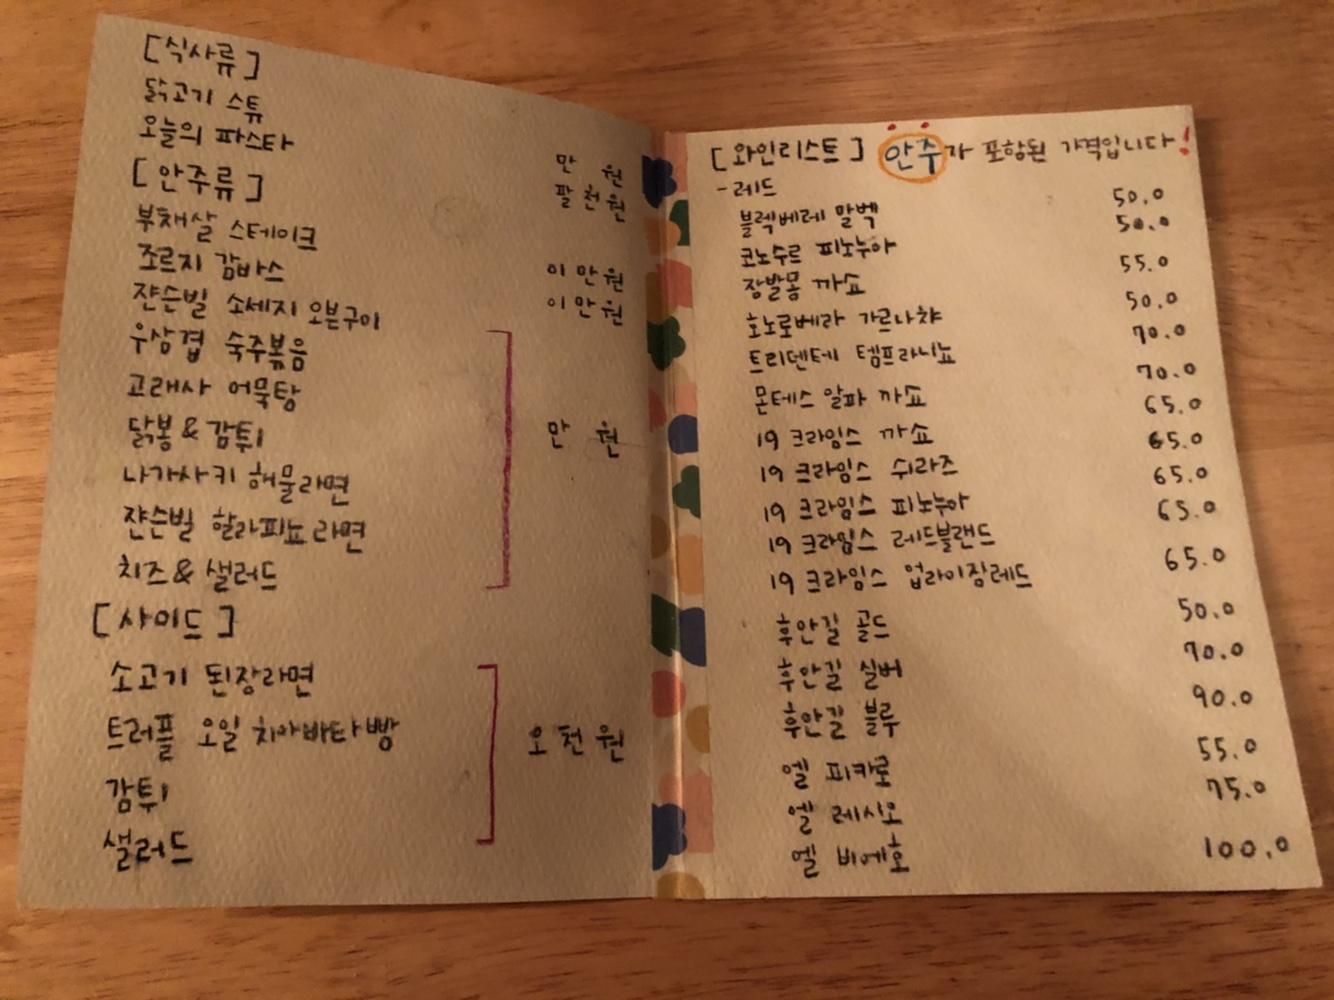 [식사류]
닭고기 스튜 만 원
오늘의 파스타 팔천원
[안주류]
부채살 스테이크 이만원
조르지 감바스 이만원
쟌슨빌 소세지 오븐구이
우삼겹 숙주볶음
고래사 어묵탕
닭봉&감튀 만 원
나가사키 해물라면
쟌슨빌 할라피뇨라면
치즈&샐러드
[사이드]
소고기 된장라면
트러플 오일 치아바타빵 오천원
감튀
샐러드
[와인리스트] 안주가 포함된 가격입니다!
-레드
블렉베레 말벡 50.0
코노수르 피노누아 50.0
장발몽 까쇼 55.0
호노로베라 가르나챠 50.0
트리덴테 템프라니뇨 70.0
몬테스 알파 까쇼 70.0
19 크라임스 까쇼 65.0
19 크라임스 쉬라즈 65.0
19 크라임스 피노누아 65.0
19 크라임스 레드블랜드 65.0
19 크라임스 업라이징레드 65.0
후안길 골드 50.0
후안길 실버 70.0
후안길 블루 90.0
엘 피카로 55.0
엘 레시오 75.0
엘 비에호 100.0